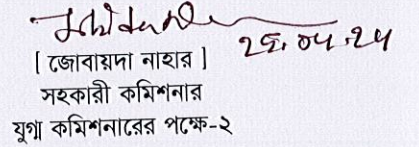 ২৫.০৮.২৫
[ জোবায়দা নাহার ]
সহকারী কমিশনার
যুগ্ম কমিশনারের পক্ষে-২